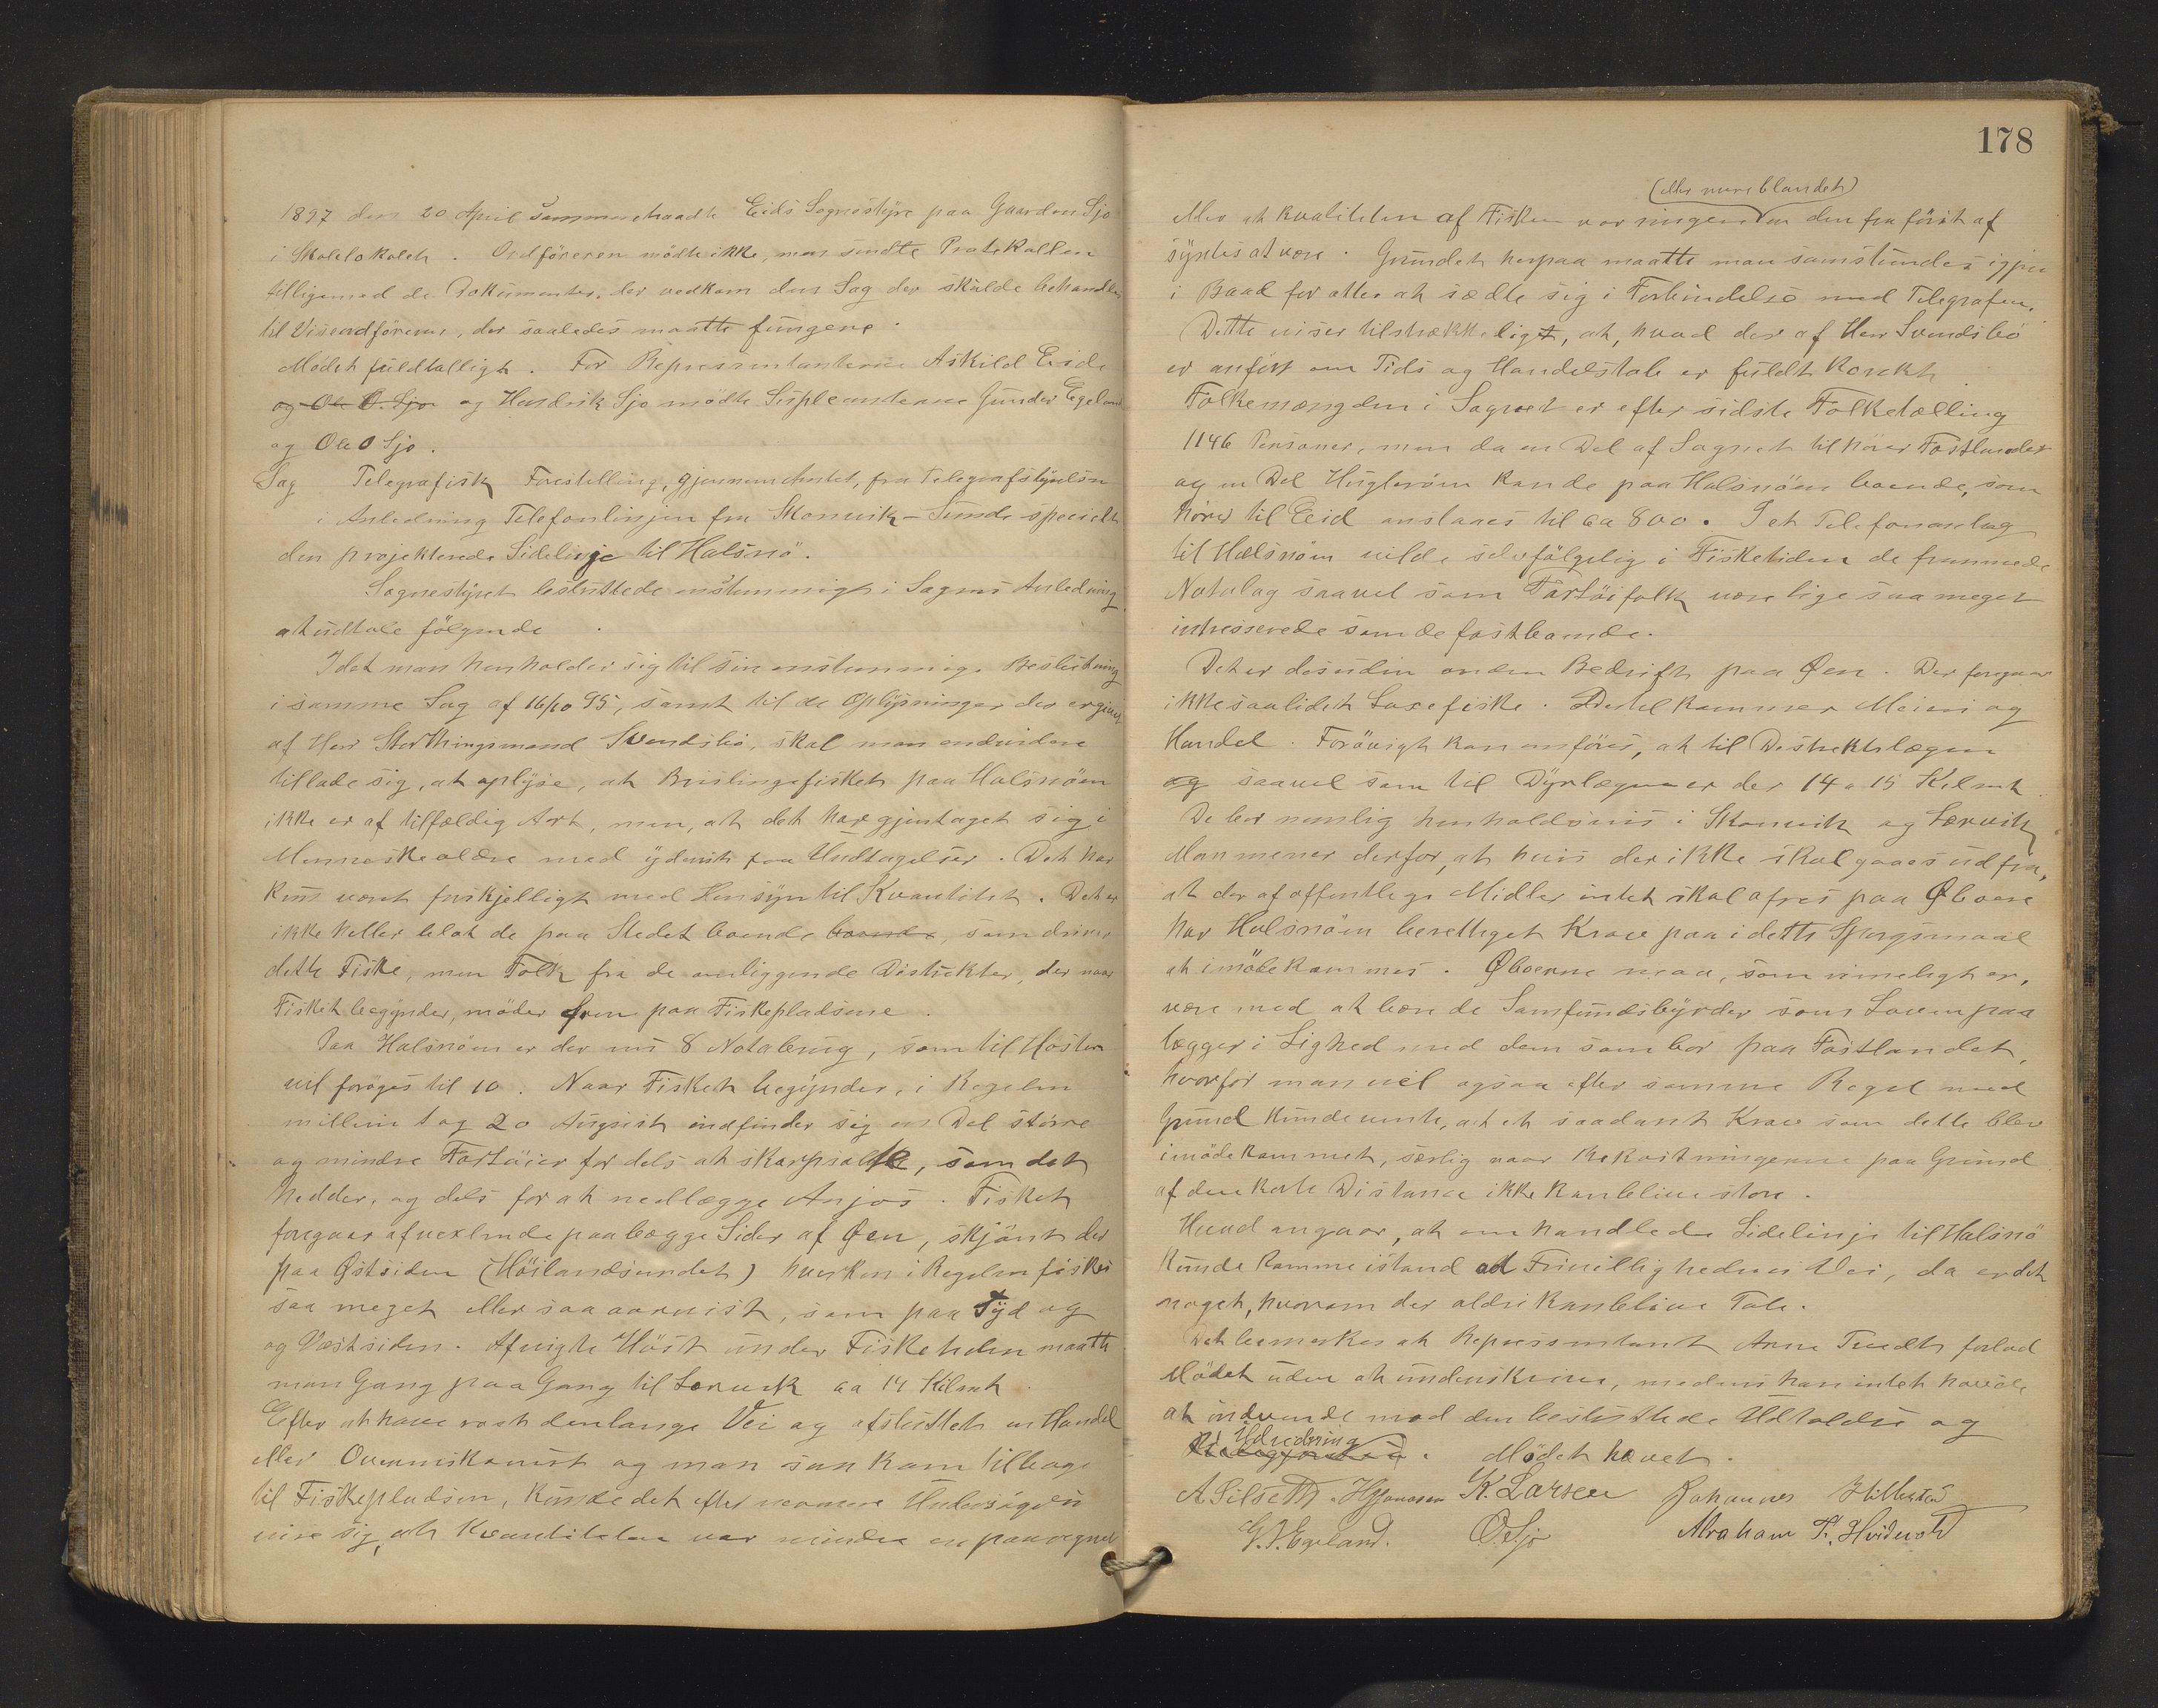 1897 den 20 April sammentraadte Eids Sognestyre paa Gaarden Sjo
i Skolelokalet. Ordföreren mödte ikke, men sendte Protokollen
tilligemed de Dokumenter, der vedkom den Sag der skulde behandles
til Viseordföreren, der saaledes maatte fungere.
Mödet fuldtalligt. For Repræsentanterne Askild Eide
og Ole O. Sjo og Hendrik Sjo mödte Supleanterne Gunder Egeland
og Ole O Sjo.
Sag Telegrafisk Forestilling, gjennem Amtet, fra Telegrafstyrelsen
i Anledning Telefonlinjen fra Skonevik - Sunde specielt
den projekterede Sidelinje til Halsnö.
Sognestyret besluttede enstemmigt i Sagens Anledning
at udtale fölgende
Idet man henholder sig til sin enstemmige Beslutning
i samme Sag af 16/10 95, samt til de Oplysninger der er givet
af Herr Storthingsmand Svendsbö, skal man endvidere
tillade sig, at oplyse, at Brislingefisket paa Halsnöen
ikke er af tilfældig Art, men, at det har gjentaget sig i
Menneskealdre med yderst faa Undtagelser. Det har
kun været forskjelligt med Hensyn til Kvantitet. Det er
ikke heller blot de paa Stedet boende boende, som driver
dette Fiske, men Folk fra de omliggende Distrikter, der naar
Fisket begynder, möder frem paa Fiskepladsene.
Paa Halsnöen er der nu 8 Notabrug, som til Hösten
vil foröges til 10. Naar Fisket begynder, i Regelen
mellem 1 og 20 August indfinder sig en Del större
og mindre Fartöier for dels at skarpsalte, som det
hedder, og dels for at nedlægge Anjos. Fisket
foregaar afvexlende paa begge Sider af Öen, skjönt der
paa Östsiden (Höilandsundet) hverken i Regelen fiskes
saa meget eller saa aarvist, som paa Syd og
og Vestsiden. Afvigte Höst under Fisketiden maatte
man Gang paa Gang til Lervik ca 14 Kilmt.
Efter at have roet den lange Vei og afsluttet en Handel
eller Overenskomst og man saa kom tilbage
til Fiskepladsen, kunde det efter nærmere Undersögelse
vise sig, at Kvantiteten var mindre en paaregnet
178
(eller mere blandet)
eller at Kvaliteten af Fisken var ringere en den fra först af
syntes at være. Grundet herpaa maatte man somstundes igjen
i Baad for atter at sætte sig i Forbindelse med Telegrafen.
Dette viser tilstrækkeligt, at, hvad der af Herr Svendsbö
er anfört om Tids og Handelstab er fuldt korekt.
Folkemængden i Sognet er efter sidste Folketælling
1146 Personer, men da en Del af Sognet tilhörer Fastlandet
og en Del Huglenöen kan de paa Halsnöen boende, som
hörer til Eid anslaaes til ca 800. I et Telefonanlæg
til Halsnöen vilde selvfölgelig i Fisketiden de fremmede
Notalag saavel som Fartöifolk være lige saa meget
interesserede som de fastboende.
Det er desuden anden Bedrift paa Öen. Der foregaar
ikke saalidet Laxefiske. Dertil kommer Meieri og
Handel. Forövrigt kan anföres, at til Destriktslægen
og saavel som til Dyrlægen er der 14 a 15 Kilmt.
De bor nemlig henholdsvis i Skonevik og Lærvik
Man mener derfor, at hvis der ikke skal gaaes ud fra,
at der af offentlige Midler intet skal ofres paa Öboere
har Halsnöen berettiget Krav paa i dette Spörgsmaal
at imödekommes. Öboerne maa, som rimeligt er,
være med at bære de Samfundsbyrder som Loven paa
lægger i Lighed med dem som bor paa Fastlandet,
hvorfor man vel ogsaa efter samme Regel med
Grund kunde vente, at et saadant Krav som dette blev
imödekommet, særlig naar Bekostningerne paa Grund
af den korte Distance ikke kan blive store.
Hvad angaar, at omhandlede Sidelinje til Halsnö
kunde komme istand ad Frivillighedens Vei, da er det
noget, hvorom der aldri kan blive Tale.
Det bemerkes at Repræsentant Arne Tvedt forlod
Mödet uden at underskrive, medens han intet havde
at indvende mod den besluttede Udtalelse og
Udredning. Mödet hævet.
A Silseth HJonassen K. Larsen Johannes Hillestad
G. J. Egeland. O. Sjo Abraham T. Hvidevold